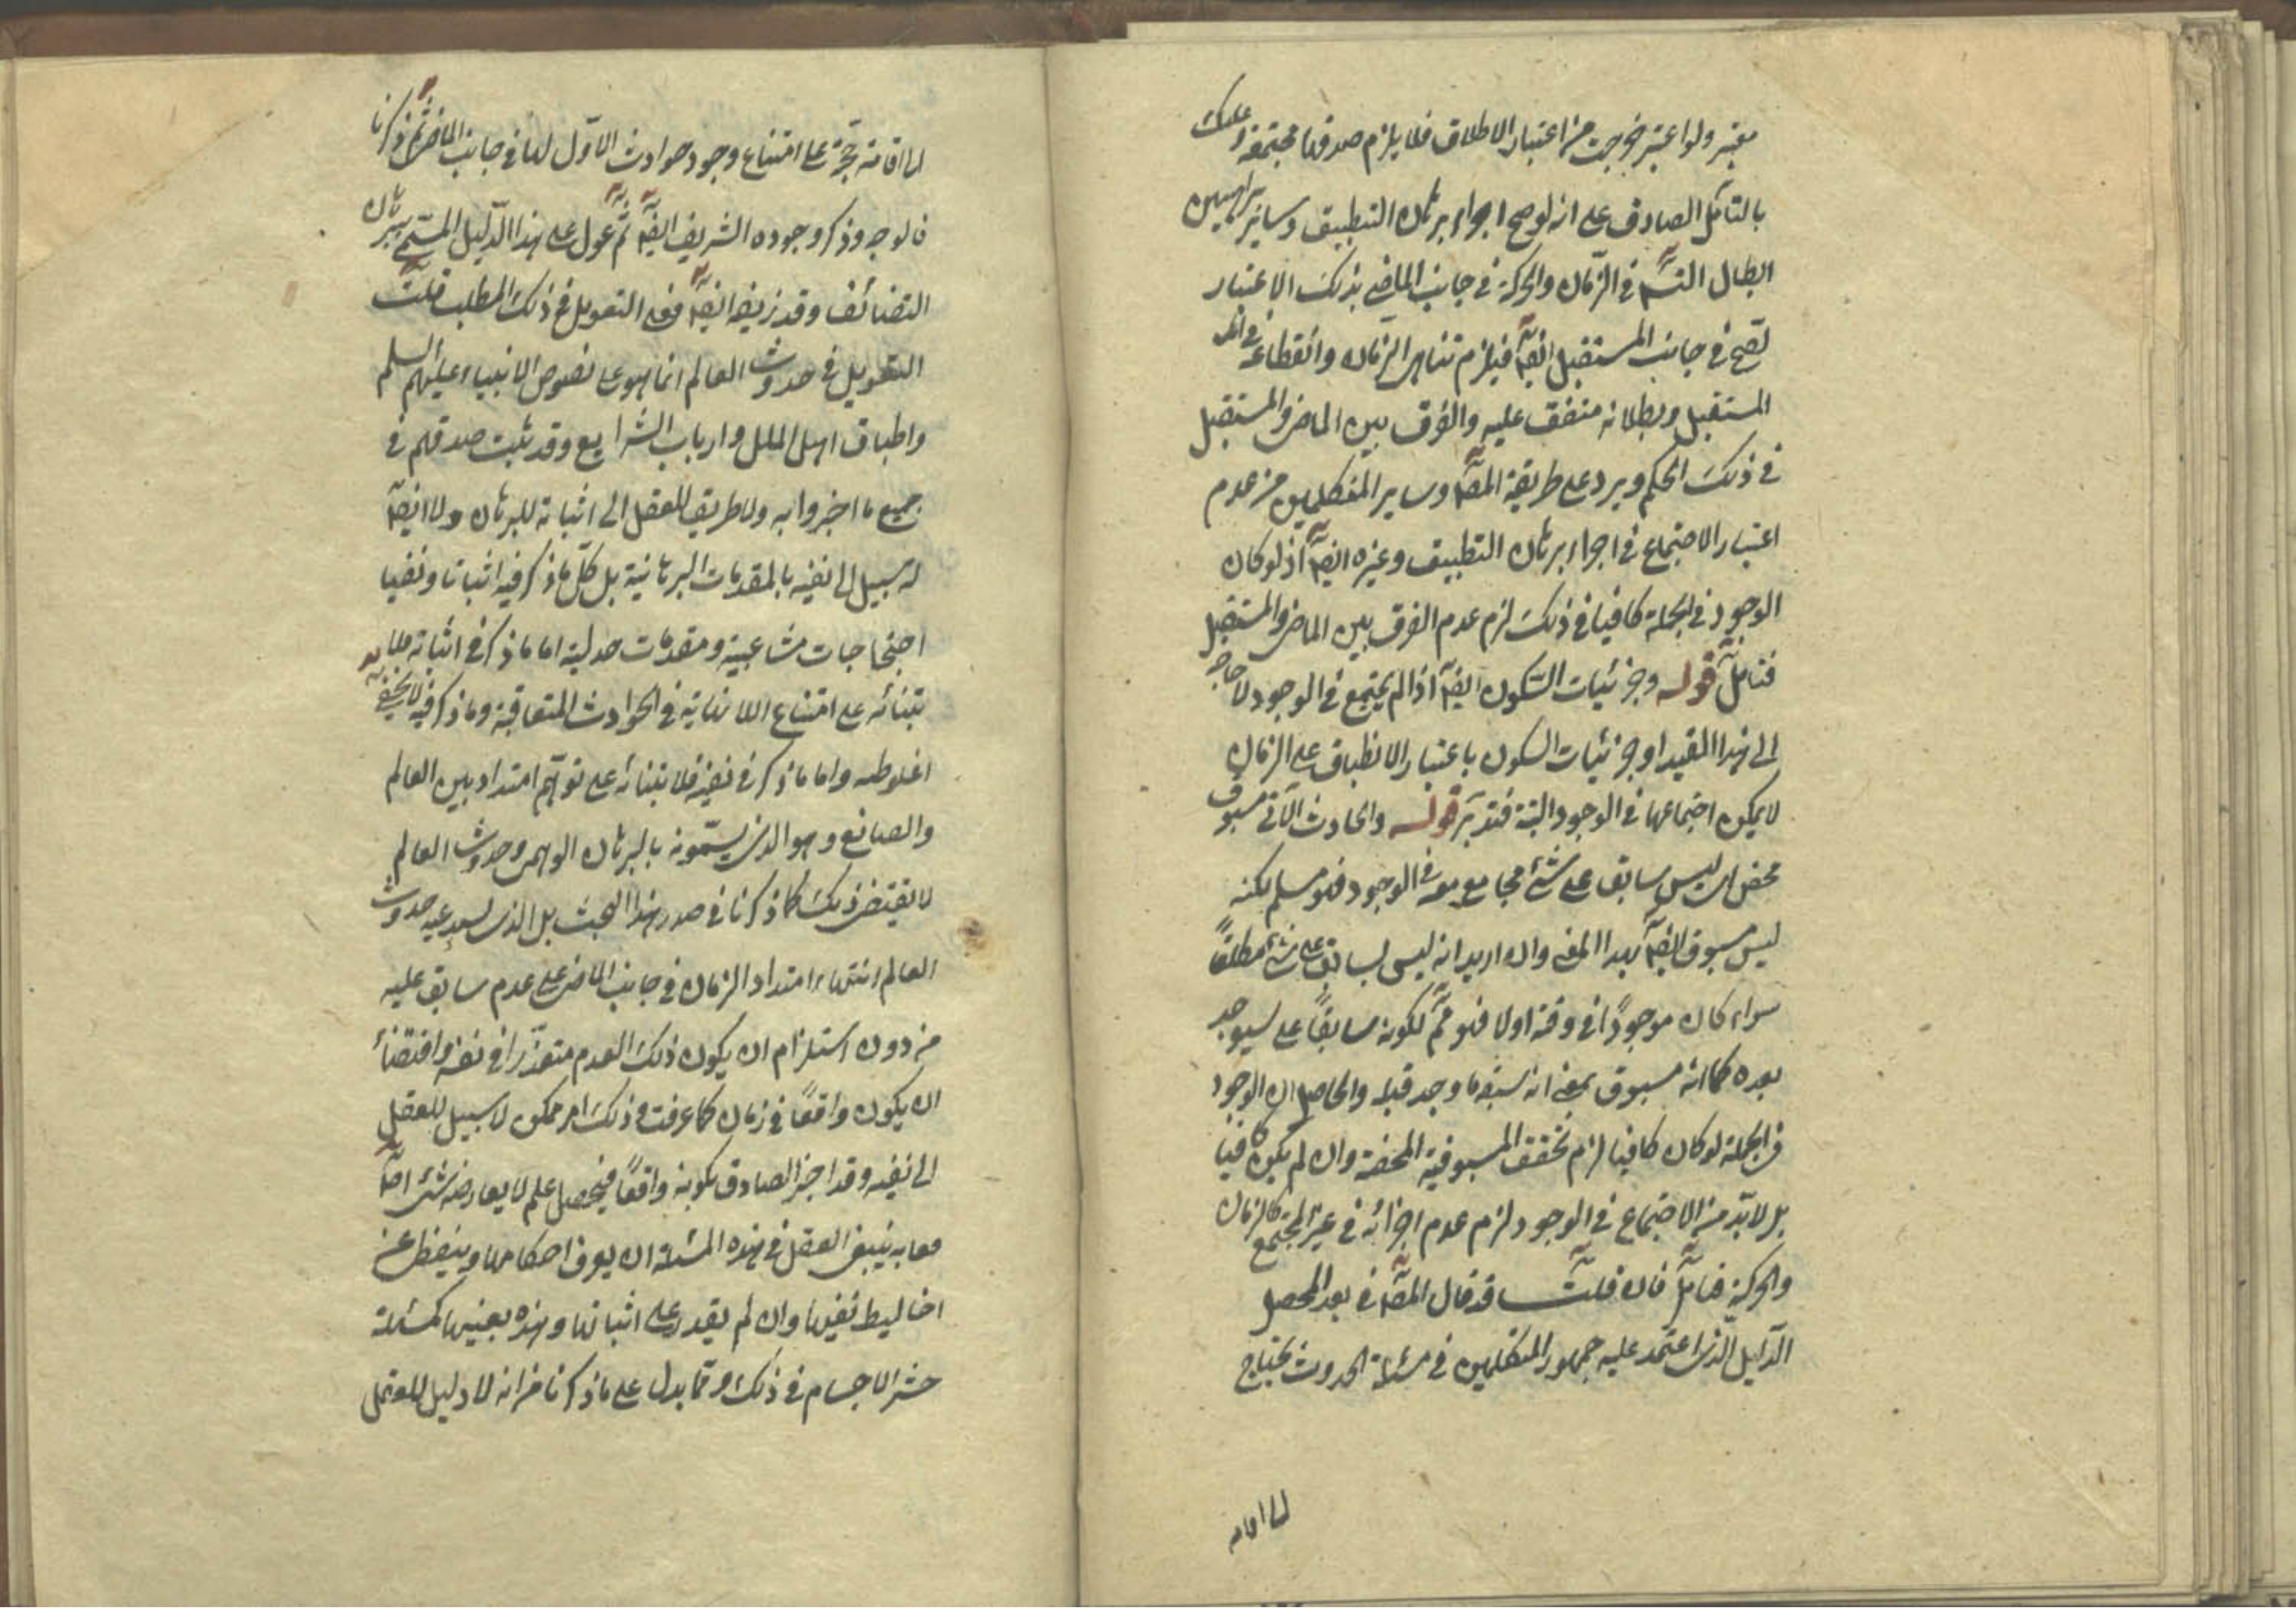 معتبر ولو اعتبر خرجت من اعتبار الاطلاق فلا يلزم صدقها مجتمعة وعليك
بالتأمل الصادق على انه لو صح اجراء برهان التطبيق وساير براهين
ابطال التسـ في الزمان والحركة في جانب الماضي بذلك الاعتبار
لصح في جانب المستقبل ايضا فيلزم تناهي الزمان وانقطاعه في
المستقبل وبطلانه متفق عليه والفرق بين الماضي والمستقبل
في ذلك الحكم ويرد على طريقة المصـ وساير المتكلمين من عدم
اعتبار الاجتماع في اجراء برهان التطبيق وغيره ايضا اذ لو كان
الوجود في الجملة كافيا في ذلك لزم عدم الفرق بين الماضي والمستقبل
فتامل قوله وجزئيات السكون ايضا اذا لم يجتمع في الوجود لا حاجة
الى هذا القيد اذ جزئيات السكون باعتبار الانطباق على الزمان
لا يمكن اجتماعها في الوجود البتة فتدبر قوله والحادث الآتي مسبوق
محض اى ليس سابق على شئ مجامع معه في الوجود فهو مسلم لكنه
ليس مسبوق ايضا بهذا المعنى وان اريد انه ليس لسابق على شئ مطلقاً
سواء كان موجوداً في وقته اولا فهو ممـ لكونه سابقاً على سيوجد
بعده كما انه مسبوق بمعنى انه سبقه ما وجد قبله والحاصل ان الوجود
في الجملة لو كان كافيا لزم تحقق المسبوقية المحضة وان لم يكن كافيا
بل لا بد من الاجتماع في الوجود لزم عدم اجرائه في غير المجتمع كالزمان
والحركة فتامل فان قلت قد قال المصـ في نقد المحصل
الدليل الذي اعتمد عليه جمهور المتكلمين في مسئلة الحدوث يحتاج
لها اقامة
لها اقامة حجة على امتناع وجود حوادث لا اول لها في جانب الماضي ثم ذكر ما
قالوه وذكر وجوده الشريف ايضا ثم عول على هذا الدليل المسمى ببرهان
التضائف وقد زيفه ايضا فعلى التعويل في ذلك المطلب قلت
التعويل في حدوث العالم انما هو على نصوص الانبياء عليهم السلم
واطباق اهل الملل وارباب الشرايع وقد ثبت صدقهم في
جميع ما اخبروا به ولا طريق للعقل الى اثباته للبرهان ولا ايضا
له سبيل الى نفيه بالمقدمات البرهانية بل كل ما ذكر فيه اثباتا ونفيا
احتجاجات مشاغبية ومقدمات جدلية اما ما ذكر في اثباته فلا
بتنائه على امتناع اللانهاية في الحوادث المتعاقبة وما ذكر فيه لا يخفى
اغلوطه واما ما ذكر في نفيه فلابتنائه على توهم امتداد بين العالم
والصانع وهو الذي يسمونه بالبرهان الوهمي وحدوث العالم
لا يقتضي ذلك كما ذكرنا في صدر هذا البحث بل الذي حدوث
العالم انتهاء امتداد الزمان في جانب الماضي على عدم سابق عليه
من دون استلزام ان يكون ذلك العدم متقدرا في نفسه واقتضاء
ان يكون واقعًا في زمان كما عرفت وذلك امر ممكن لا سبيل للعقل
الى نفيه وقد اخبر الصادق بكونه واقعاً فيحصل علم لا يعارضه شئ اصلا
ينبغي العقل في هذه المسئلة ان يعرف احكامها ويتيقظ عن
اغاليط نفيها وان لم يقدر على اثباتها وهذه بعينها كمسئلة
حشر الاجسام في ذلك ومما يدل على ما ذكرنا من انه لا دليل للعقل